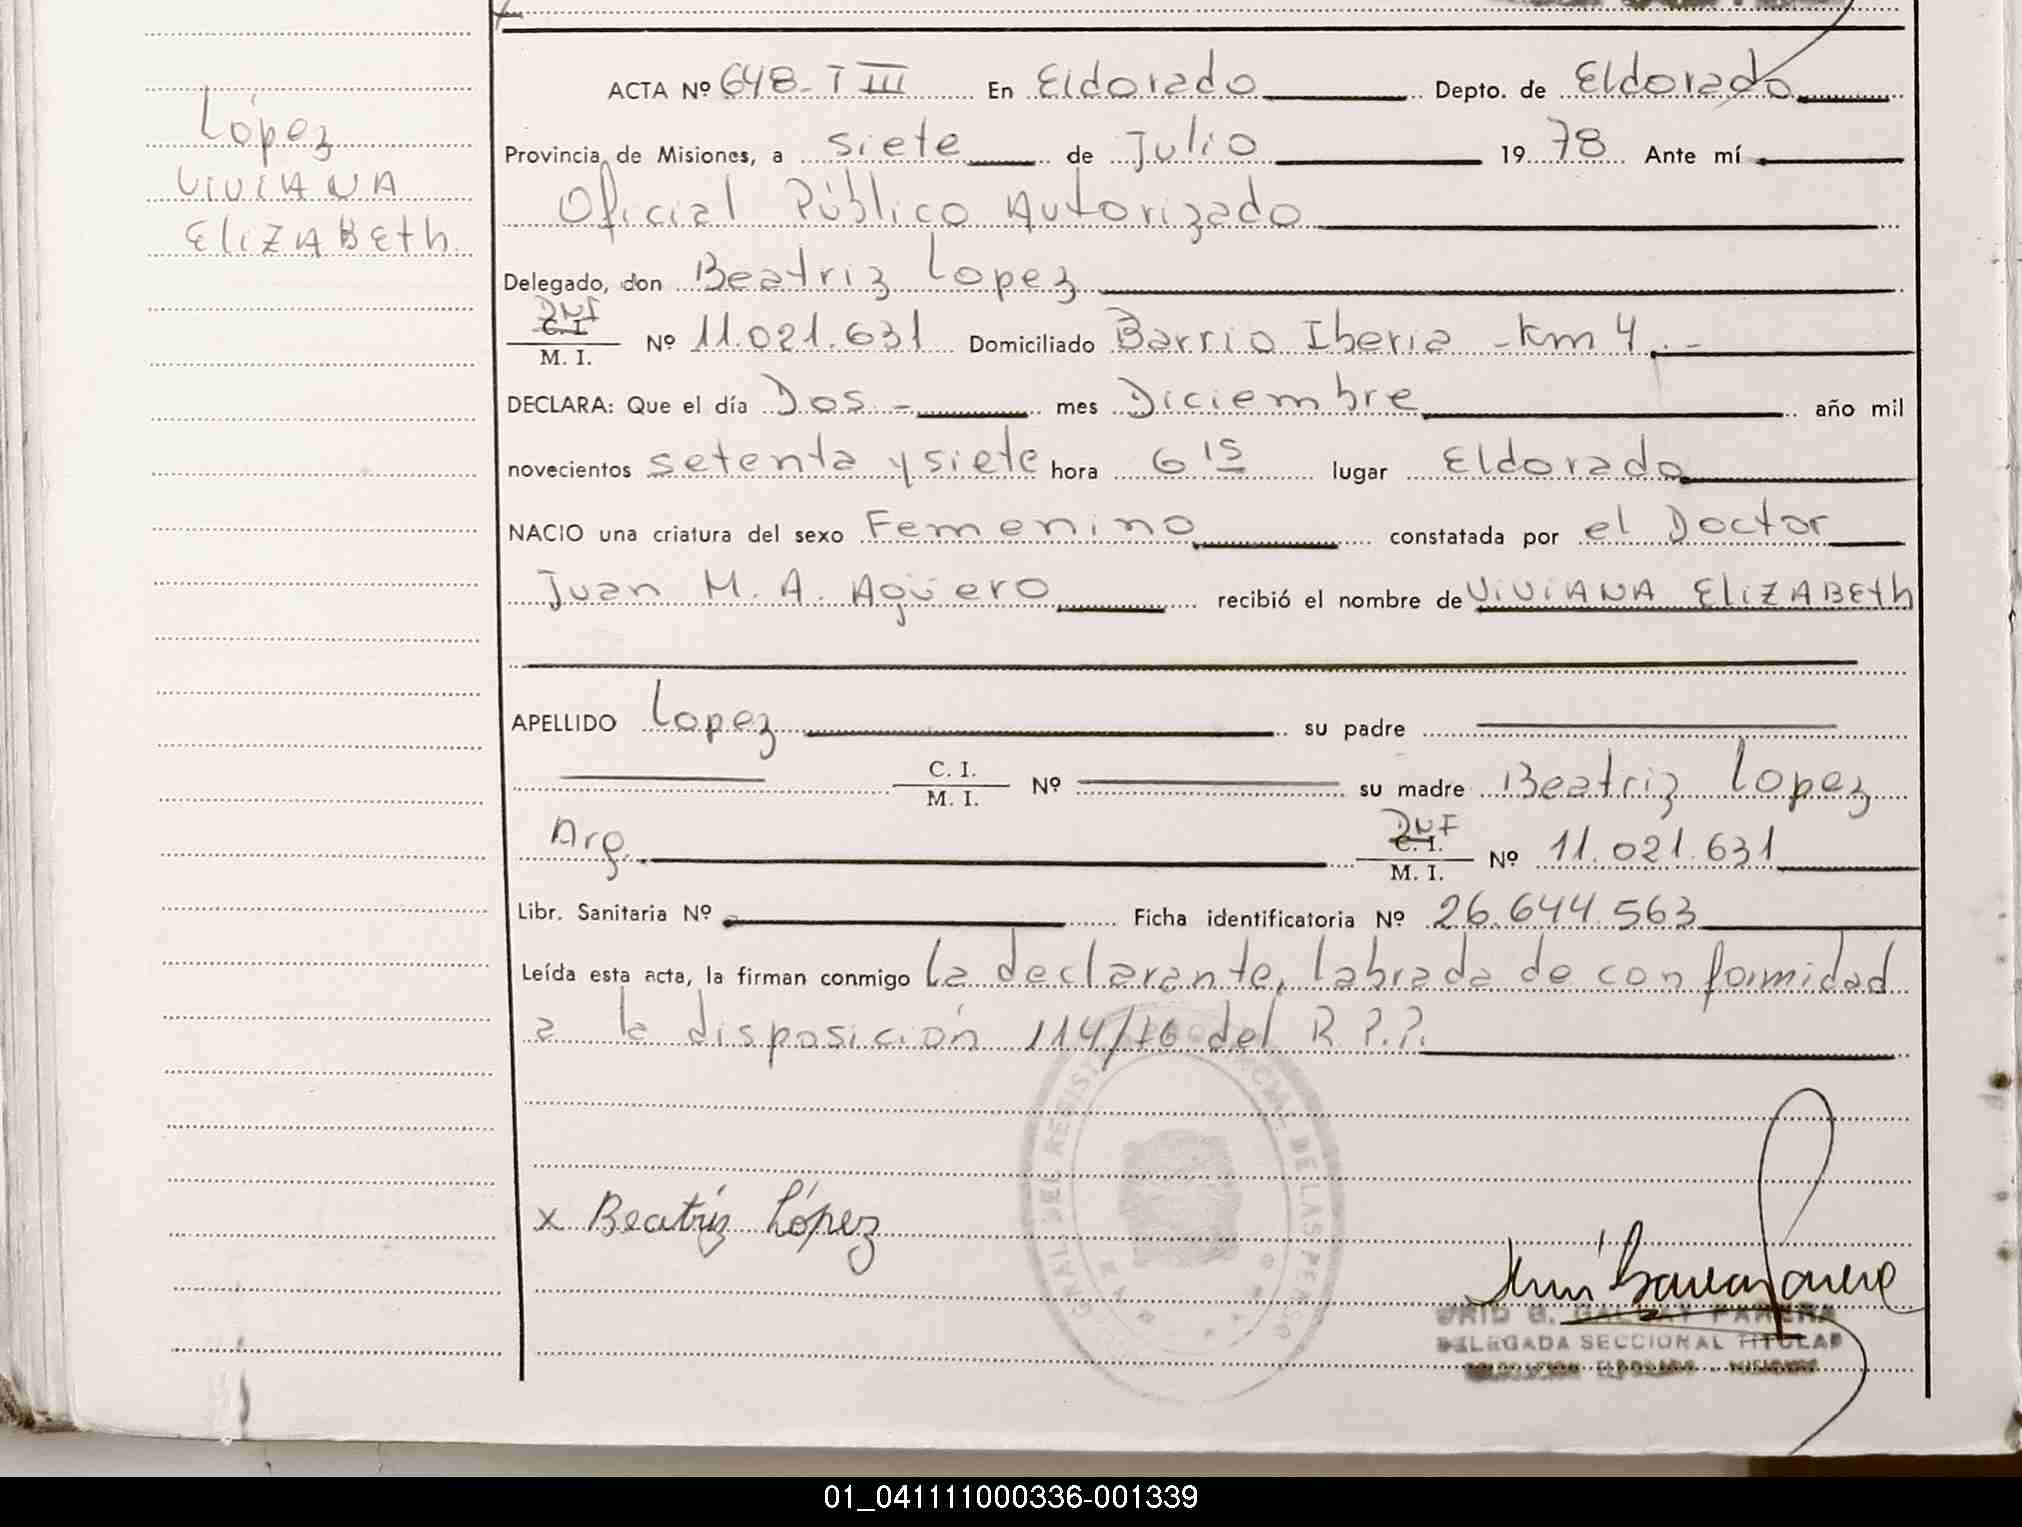 López
VIVIANA
ElizABEth
ACTA Nº 648-T III En Eldorado Depto. de Eldorado
Provincia de Misiones, a siete de Julio 1978 Ante mí
Oficial Público Autorizado
Delegado, don Beatriz Lopez
DNI
C. I.
M. I. Nº 11.021.631 Domiciliado Barrio Iberia - Km 4.-
DECLARA: Que el día Dos - mes Diciembre año mil
novecientos setenta y siete hora 6 15 lugar Eldorado
NACIO una criatura del sexo Femenino constatada por el Doctor
Juan M. A. Agüero recibió el nombre de ViViANA ElizABEth
APELLIDO Lopez su padre
C. I.
M. I. Nº su madre Beatriz Lopez
Arg. DNI
C. I.
M. I. Nº 11.021.631
Libr. Sanitaria Nº Ficha identificatoria Nº 26.644.563
Leída esta acta, la firman conmigo la declarante, labrada de conformidad
a la disposición 114/76 del R.P.P.
x Beatríz López
DELEGADA SECCIONAL TITULAR
01_041111000336-001339